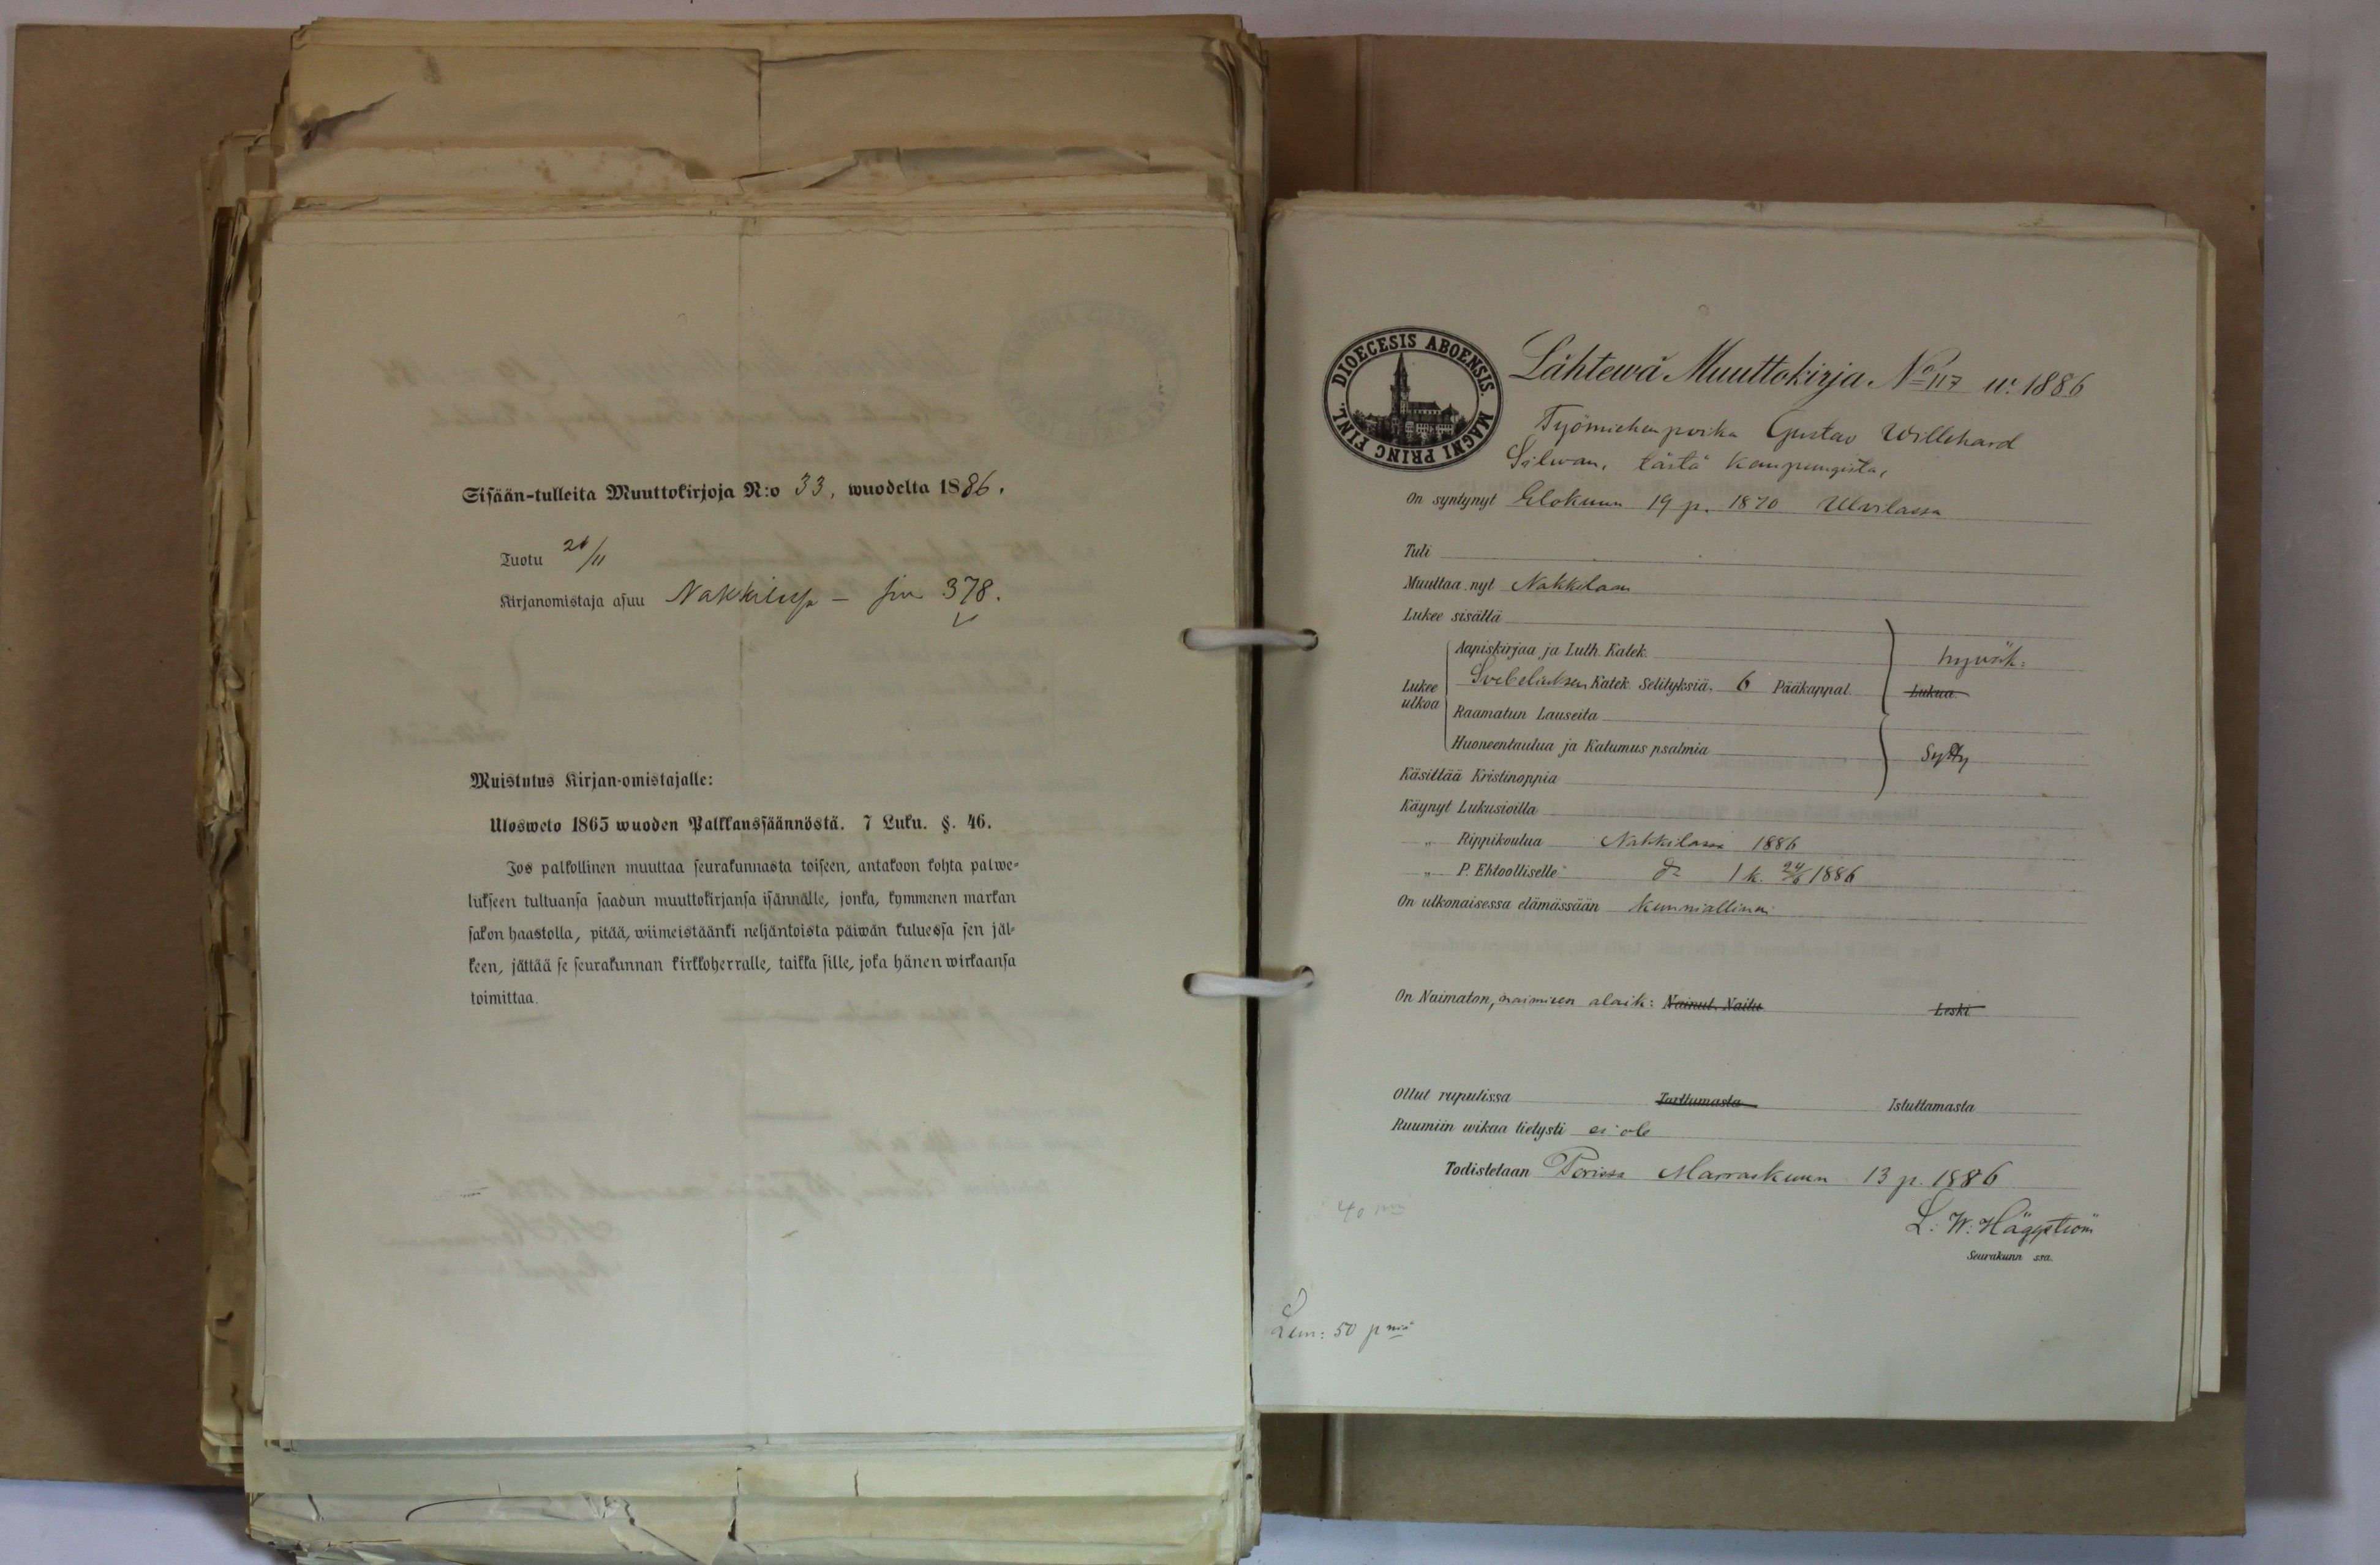 Sisään-tulleita Muuttokirjoja N:o 33, wuodelta 1886.
Tuotu 21/11
Kirjanomistaja asuu Nakkilassa – siv 378.
Muistutus Kirjan-omistajalle:
Ulosweto 1865 wuoden Palkkanssäännöstä. 7 Luku. §. 46.
Jos palkollinen muuttaa seurakunnasta toiseen, antakoon kohta palwe-
lukseen tultuansa saadun muuttokirjansa isännälle, jonka, kymmenen markan
sakon haastolla, pitää, wiimeistäänki neljäntoista päiwän kuluessa sen jäl-
keen, jättää se seurakunnan kirkkoherralle, taikka sille, joka hänen wirkaansa
toimittaa.
DIOECESIS ABOENSIS. MAGNI PRINC FINL.
Lähtewä Muuttokirja No 117 w. 1886
Työmiehen poika Gustav Willehard
Silwan, tästä kaupungista,
On syntynyt Elokuun 19 p. 1870 Ulvilassa
Tuli
Muuttaa nyt Nakkilaan
Lukee sisältä
Aapiskirjaa ja Luth. Katek. hyväk:
Lukee ulkoa Svebeliuksen Katek. Selityksiä, 6 Pääkappal. Lukua
Raamatun Lauseita
Huoneentaulua ja Katumus psalmia Sytty
Käsittää Kristinoppia
Käynyt Lukusioilla
„ Rippikoulua Nakkilassa 1886
„ P. Ehtoolliselle do 1 k. 24/6 1886
On ulkonaisessa elämässään kunniallinen
On Naimaton, naimisen alaik: Nainut. Naitu Leski
Ollut rupulissa Tarttumasta Istuttamasta
Ruumiin wikaa tietysti ei ole
Todistetaan Porissa Marraskuun 13 p. 1886
L. W. Häggström
Seurakunn ssa.
40 pniä
Lun: 50 pniä